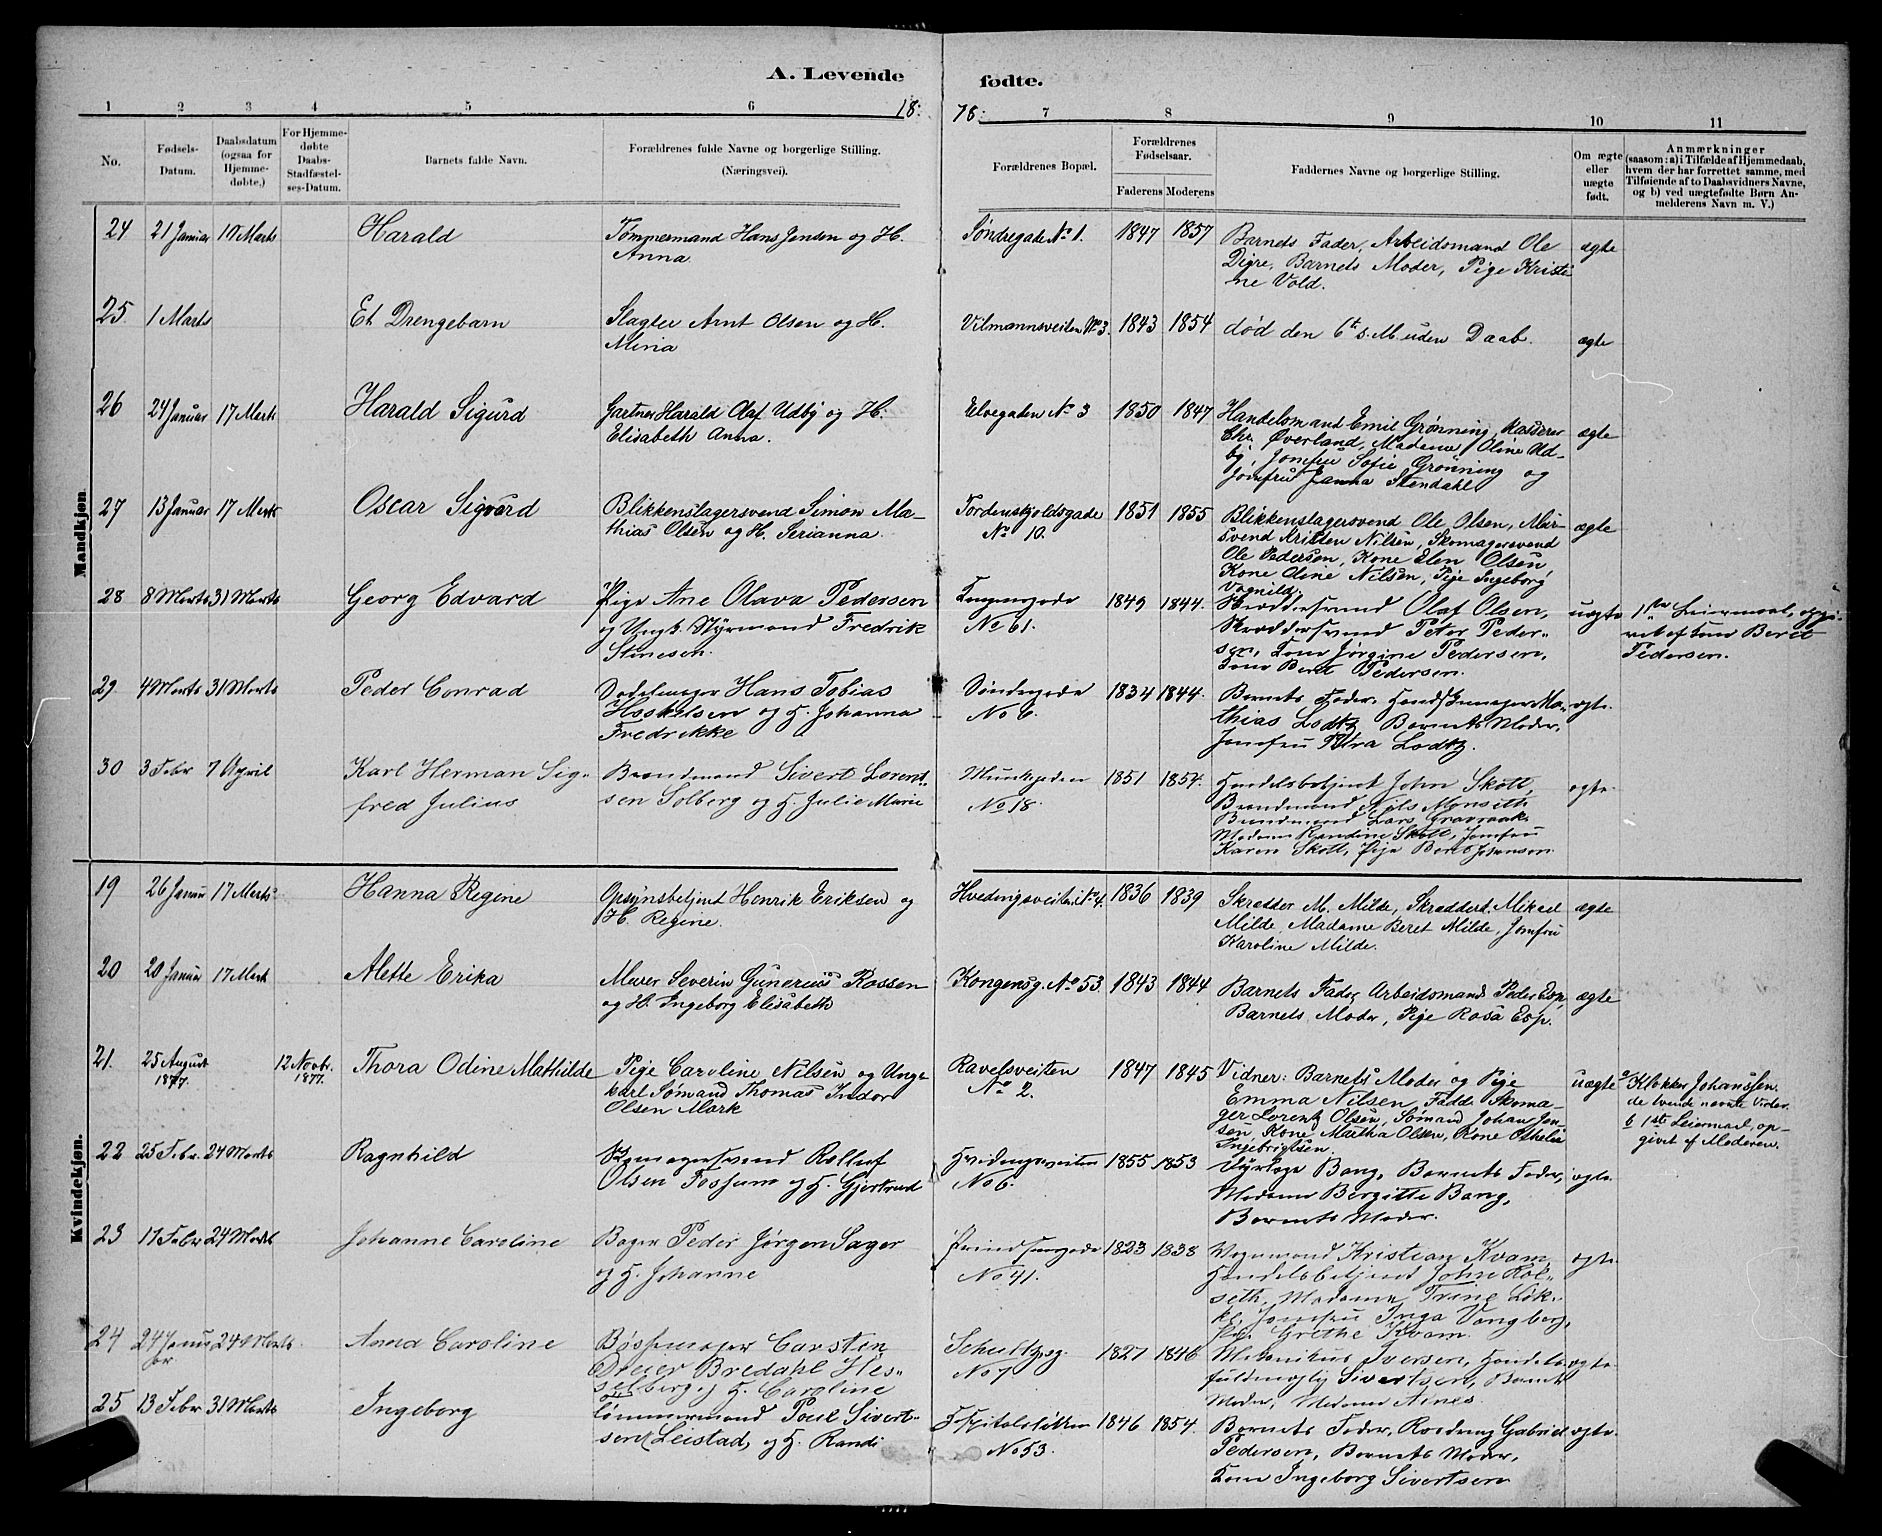 A. Levende fødte.
1 2 3 4 5 6 18 78. 7 8 9 10 11
No.
Fødsels-Datum.
Daabsdatum (ogsaa for Hjemmedøbte.)
For Hjemmedøbte Daabs-Stadfæstelses-Datum.
Barnets fulde Navn.
Forældrenes fulde Navne og borgerlige Stilling.
(Næringsvei).
Forældrenes Bopæl.
Forældrenes Fødselsaar.
Faderens Moderens
Faddernes Navne og borgerlige Stilling.
Om ægte eller uægte født.
Anmærkninger
(saasom: a) i Tilfælde af Hjemmedaab,
hvem der har forrettet samme, med
Tilføiende af to Daabsvidners Navne,
og b) ved uægtefødte Børn Anmelderens Navn m. V.)
Mandkjøn.
24 21 Januar 10 Marts Harald Tømmermand Hans Jensen og H. Søndregade No 1. 1847 1857 Barnets Fader, Arbeidsmand Ole ægte
Anna Digre, Barnets Moder, Pige Kristi
ne Vold.
25 1 Marts Et Drengebarn Slagter Arnt Olsen og H. Vilmannsveiten No 3. 1843 1854 død den 6te s. M. uden Daab. ægte
26 24 Januar 17 Marts Harald Sigurd Gartner Harald Olaf Udby og H. Elvegaden No 3 1850 1847 Handelsmand Emil Grønning, Kasserer ægte
Elisabeth Anna. Chr. Øverland, Madame Oline Ud-
by, Jomfru Sofie Grønning og
Jomfru Janna Stendahl
27 13 Januar 17 Marts Oscar Sigvard Blikkenslagersvend Simon Ma- Tordenskjoldsgade 1851 1855 Blikkenslagersvend Ole Olsen, Mur- ægte
thias Olsen og H. Serianna. No 10. svend Kristen Nilsen, Skomagersvend
Ole Pedersen, Kone Elen Olsen,
Kone Oline Nilsen, Pige Ingeborg
Vognild.
28 8 Marts 31 Marts Georg Edvard Pige Ane Olava Pedersen Kongensgade 1849 1844. Skræddersvend Olaf Olsen, uægte 1ste Leiermaal, opgi-
og Ungk. Styrmand Fredrik No 61. Skræddersvend Peter Peder- vet af Kone Beret
Stinesen. sen, Kone Jørgine Pedersen, Pedersen.
Kone Beret Pedersen.
29. 4 Marts 31 Marts Peder Conrad Sadelmager Hans Tobias Søndregade 1834 1844. Barnets Fader, Handskemager Ma- ægte.
og H. Johanna No 6. thias Lodtz, Barnets Moder,
Fredrikke Jomfru Petra Lodtz.
30 3 Febr 7 April Karl Herman Sig- Brandmand Sivert Lorent- Munkgaden 1851 1854. Handelsbetjent John Skott, ægte.
fred Julius sen Solberg og H. Julie Marie No 18. Brandmand Nils Monseth
Brandmand Lars Gravraak
Madame Randine Skott, Jomfru
Karen Skott, Pige Beret Johansen.
Kvindekjøn.
19 26 Januar 17 Marts Hanna Regine Opsynsbetjent Henrik Eriksen og Hvedingsveiten No 4. 1836 1839 Skrædder M. Milde, Skrædder Mikael ægte
H. Regine. Milde, Madame Beret Milde, Jomfru
Karoline Milde.
20 20 Januar 17 Mart Alette Erika Murer Severin Gunerius Rossen Kongensg. No 53. 1843 1844 Barnets Fader, Arbeidsmand Peder Esp, ægte
og H. Ingeborg Elisabeth Barnets Moder, Pige Rosa Esp.
21. 25 August 12 Novbr. Thora Odine Mathilde Pige Caroline Nilsen og Unge Ravelsveiten 1847 1845 Vidner: Barnets Moder og Pige uægte a Klokker Johanssen.
1877. 1877. karl Sømand Thomas Indor No 2. Emma Nilsen, Fadd: Skoma- de tvende nævnte Vidner.
Olsen Mork ger Lorentz Olsen, Sømand Johan Jen- b 1ste Leiermaal, op-
sen, Kone Martha Olsen, Kone Othelie givet af Moderen.
Ingebrigtsen.
22 25 Febr. 24 Marts Ragnhild Skomagersvend Rollof Hvedingsveiten 1855 1853 Dyrlæge Bang, Barnets Fader, ægte.
Olsen Fossum og H. Gjertrud No 6. Madame Bergitte Bang,
Barnets Moder.
23 17 Febr 24 Marts Johanne Caroline Bager Peder Jørgen Sager Prindsensgade 1823 1838 Vognmand Kristian Kvam, ægte.
og H. Johanne No 41. Handelsbetjent John Rol-
seth, Madame Trine Løk-
ke, Jomfru Inga Vangberg,
Grethe Kvam.
24 24 Januar 24 Marts Anna Caroline Bøssemager Carsten Schultzsg. 1827 1846 Mekanikus Iversen, Handels- ægte.
Dreier Bredahl Hes- No 7. fuldmægtig Sivertsen, Barnets
selberg og H. Caroline Moder, Madame Aines.
25 13 Febr 31 Marts Ingeborg Tømmermand Poul Sivert- Hospitalsløkken 1846 1854. Barnets Fader, Gabriel ægte.
sen Leistad, og H. Randi No 53. Pedersen, Barnets Moder,
Kone Ingeborg Sivertsen